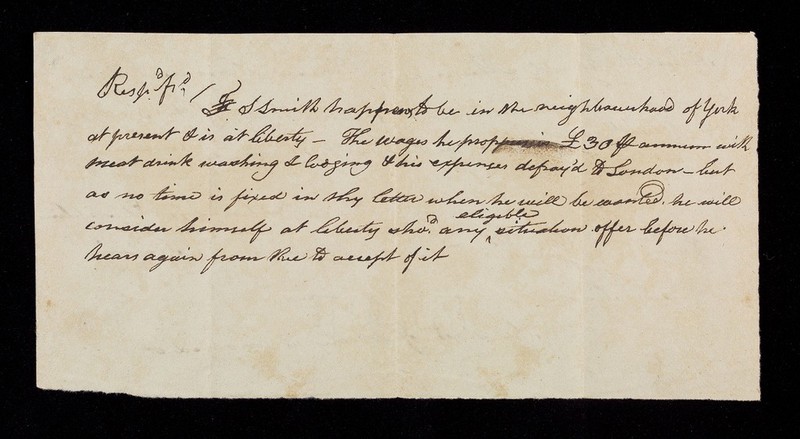 Resp.d fr.d /
S Smith happens to be in the neighbourhood of York
at present & is at liberty – The wages he £30 ℔ annum with
meat drink washing & lodging & his expenses defray'd to London – but
as no time is fixed in thy letter when he will be wanted. he will
consider himself at liberty sho.d any eligible situation offer before he
hears again from thee to accept of it